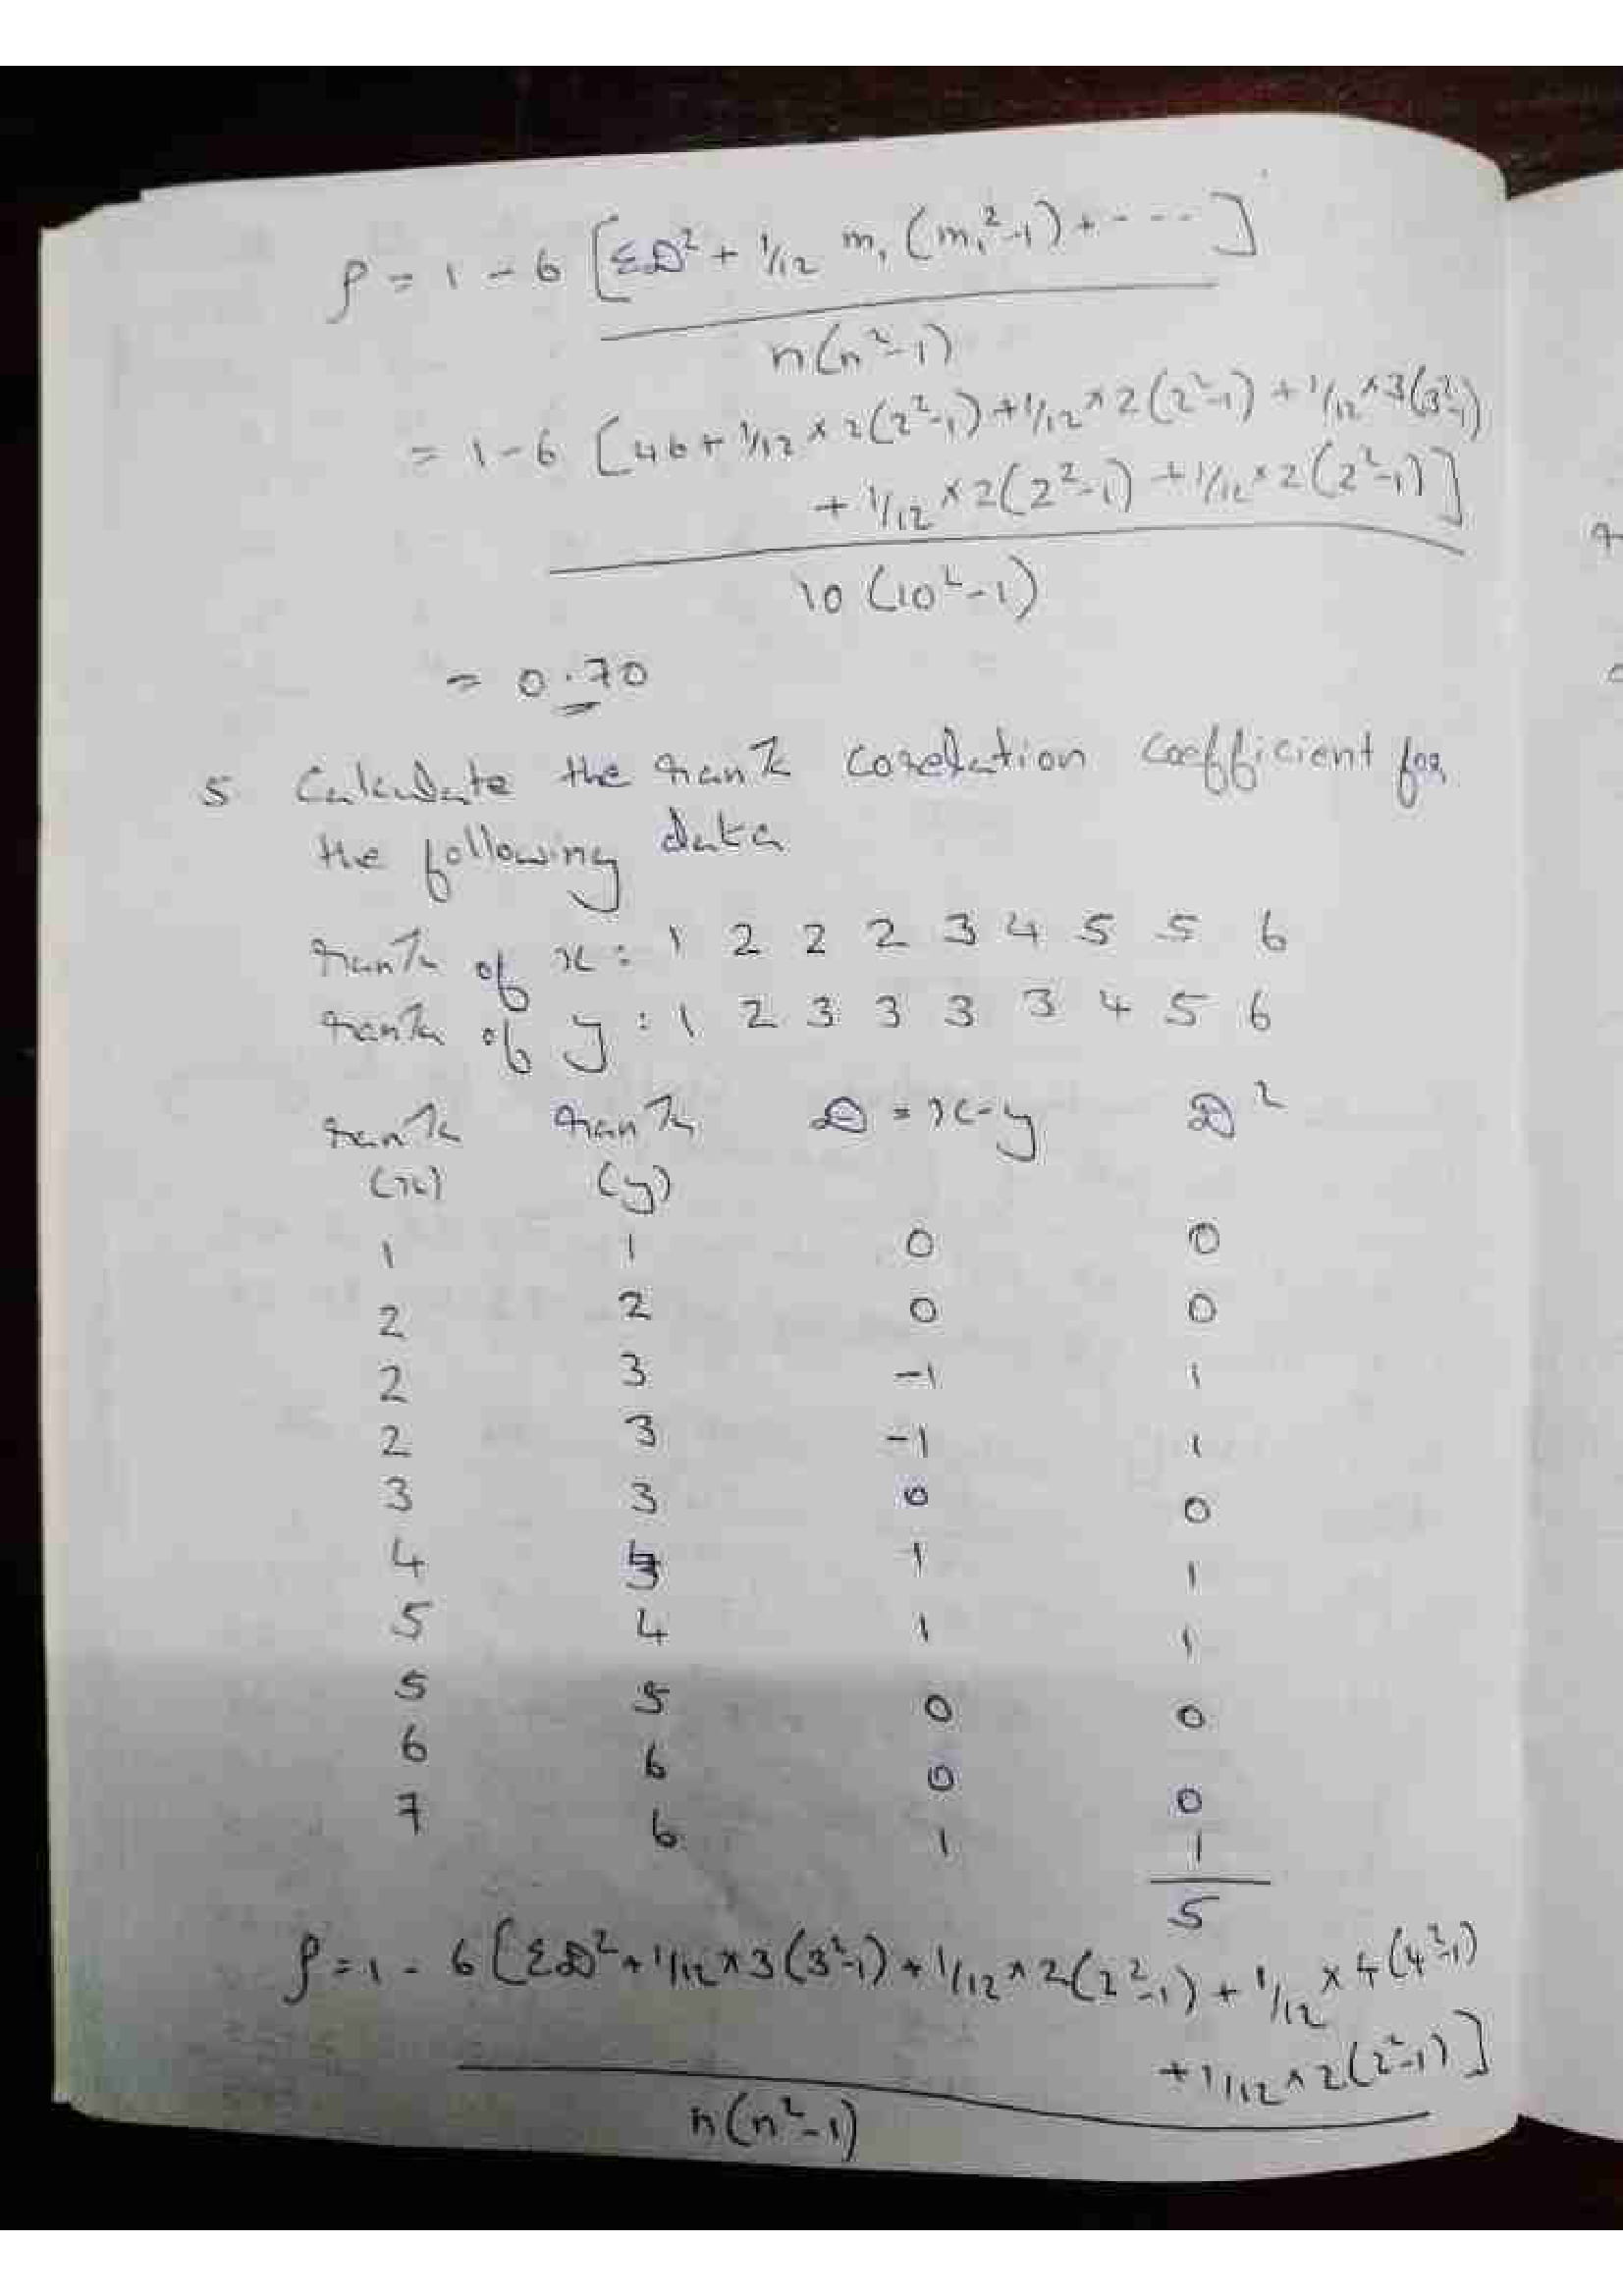 ρ = 1 - 6 [ΣD² + 1/12 m₁ (m₁² -1) + ----]
n(n²-1)
= 1-6 [46 + 1/12 × 2(2²-1) + 1/12 × 2(2²-1) + 1/12 × 3(3²-1)
+ 1/12 × 2(2²-1) + 1/12 × 2(2²-1)]
10 (10²-1)
= 0.70
5 Calculate the rank corelation coefficient for
the following data
rank of x : 1 2 2 2 3 4 5 5 6
rank of y : 1 2 3 3 3 3 4 5 6
rank rank D = x-y D²
(x) (y)
1 1 0 0
2 2 0 0
2 3 -1 1
2 3 -1 1
3 3 0 0
4 3 1 1
5 4 1 1
5 5 0 0
6 6 0 0
7 6 1 1
5
ρ = 1 - 6 [ΣD² + 1/12 × 3(3²-1) + 1/12 × 2(2²-1) + 1/12 × 4(4²-1)
+ 1/12 × 2(2²-1)]
n(n²-1)